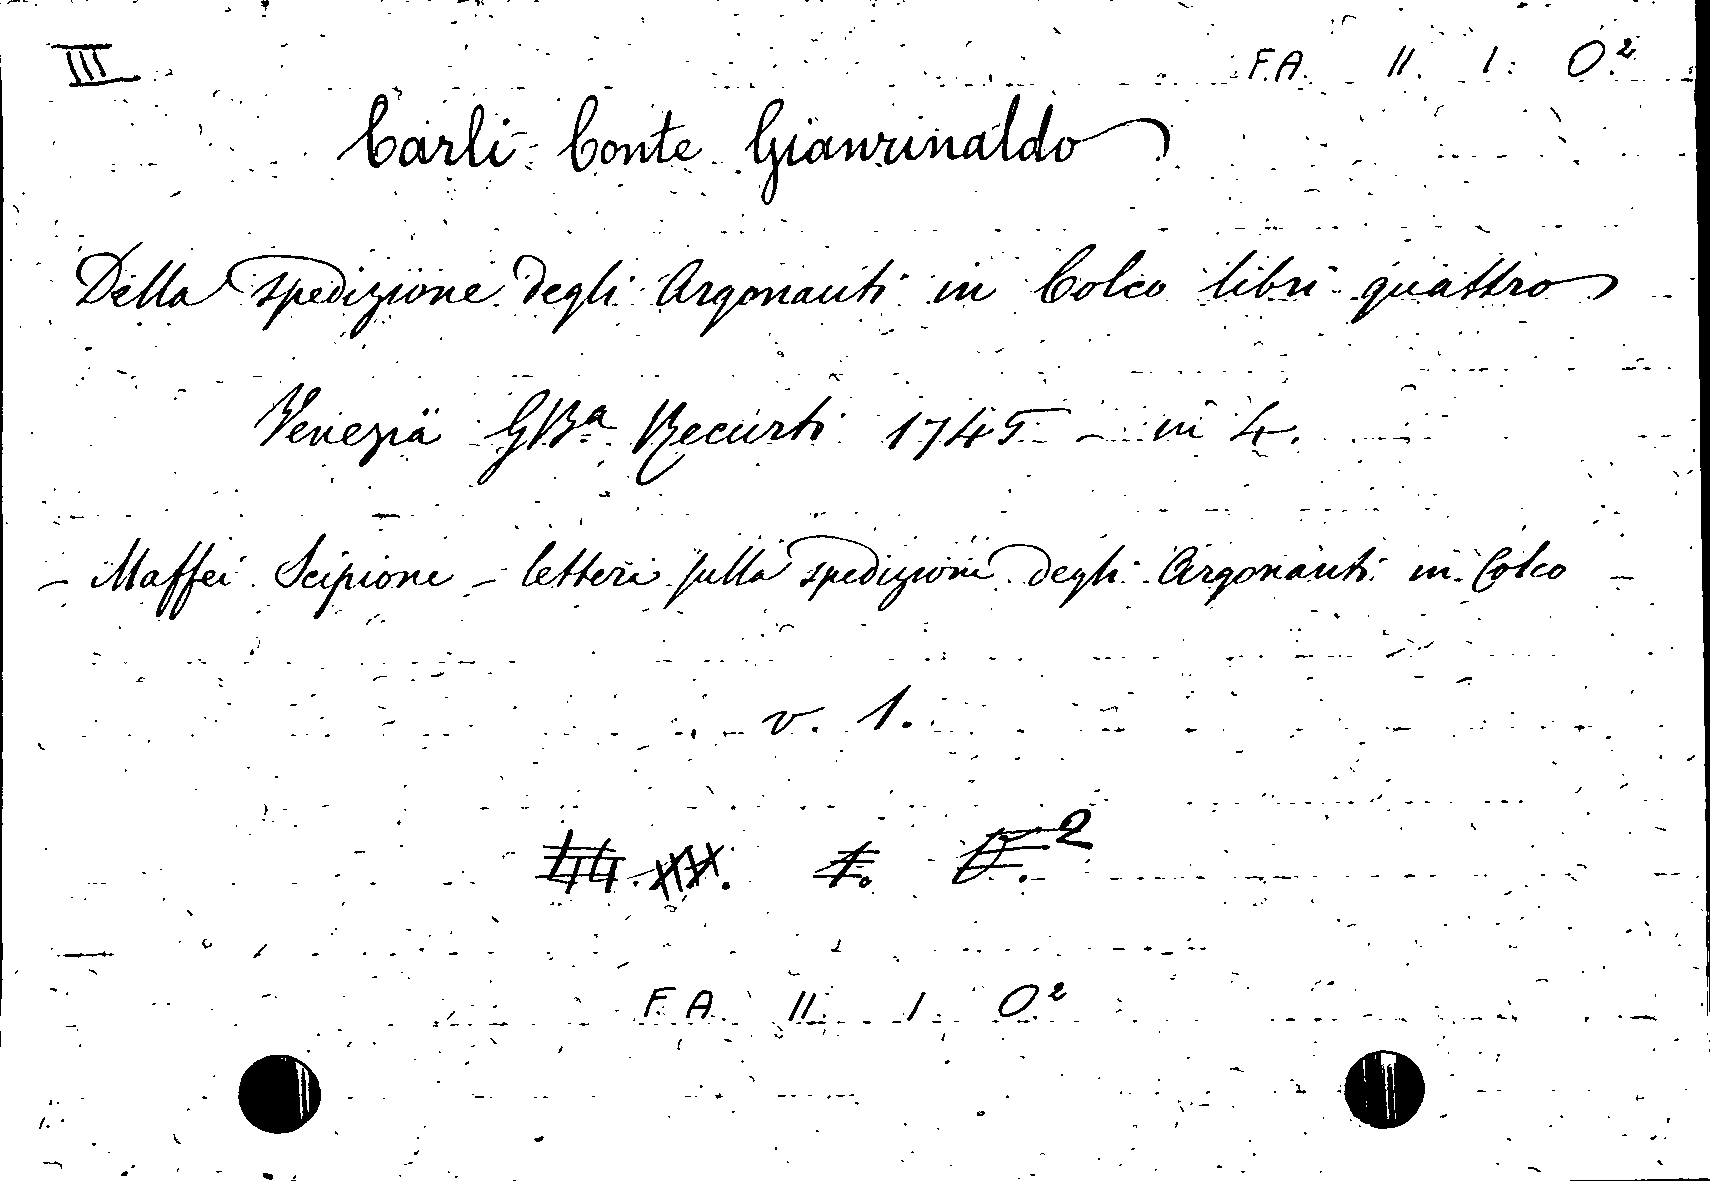 III F.A. II. I. O.²
Carli Conte Gianrinaldo
Della spedizione degli Argonauti in Colco libri quattro
Venezia GBª Recurti 1745 - in 4.
- Maffei Scipione - lettera sulla spedizione degli Argonauti in Colco -
v. 1.
F.A. II. I. O.²